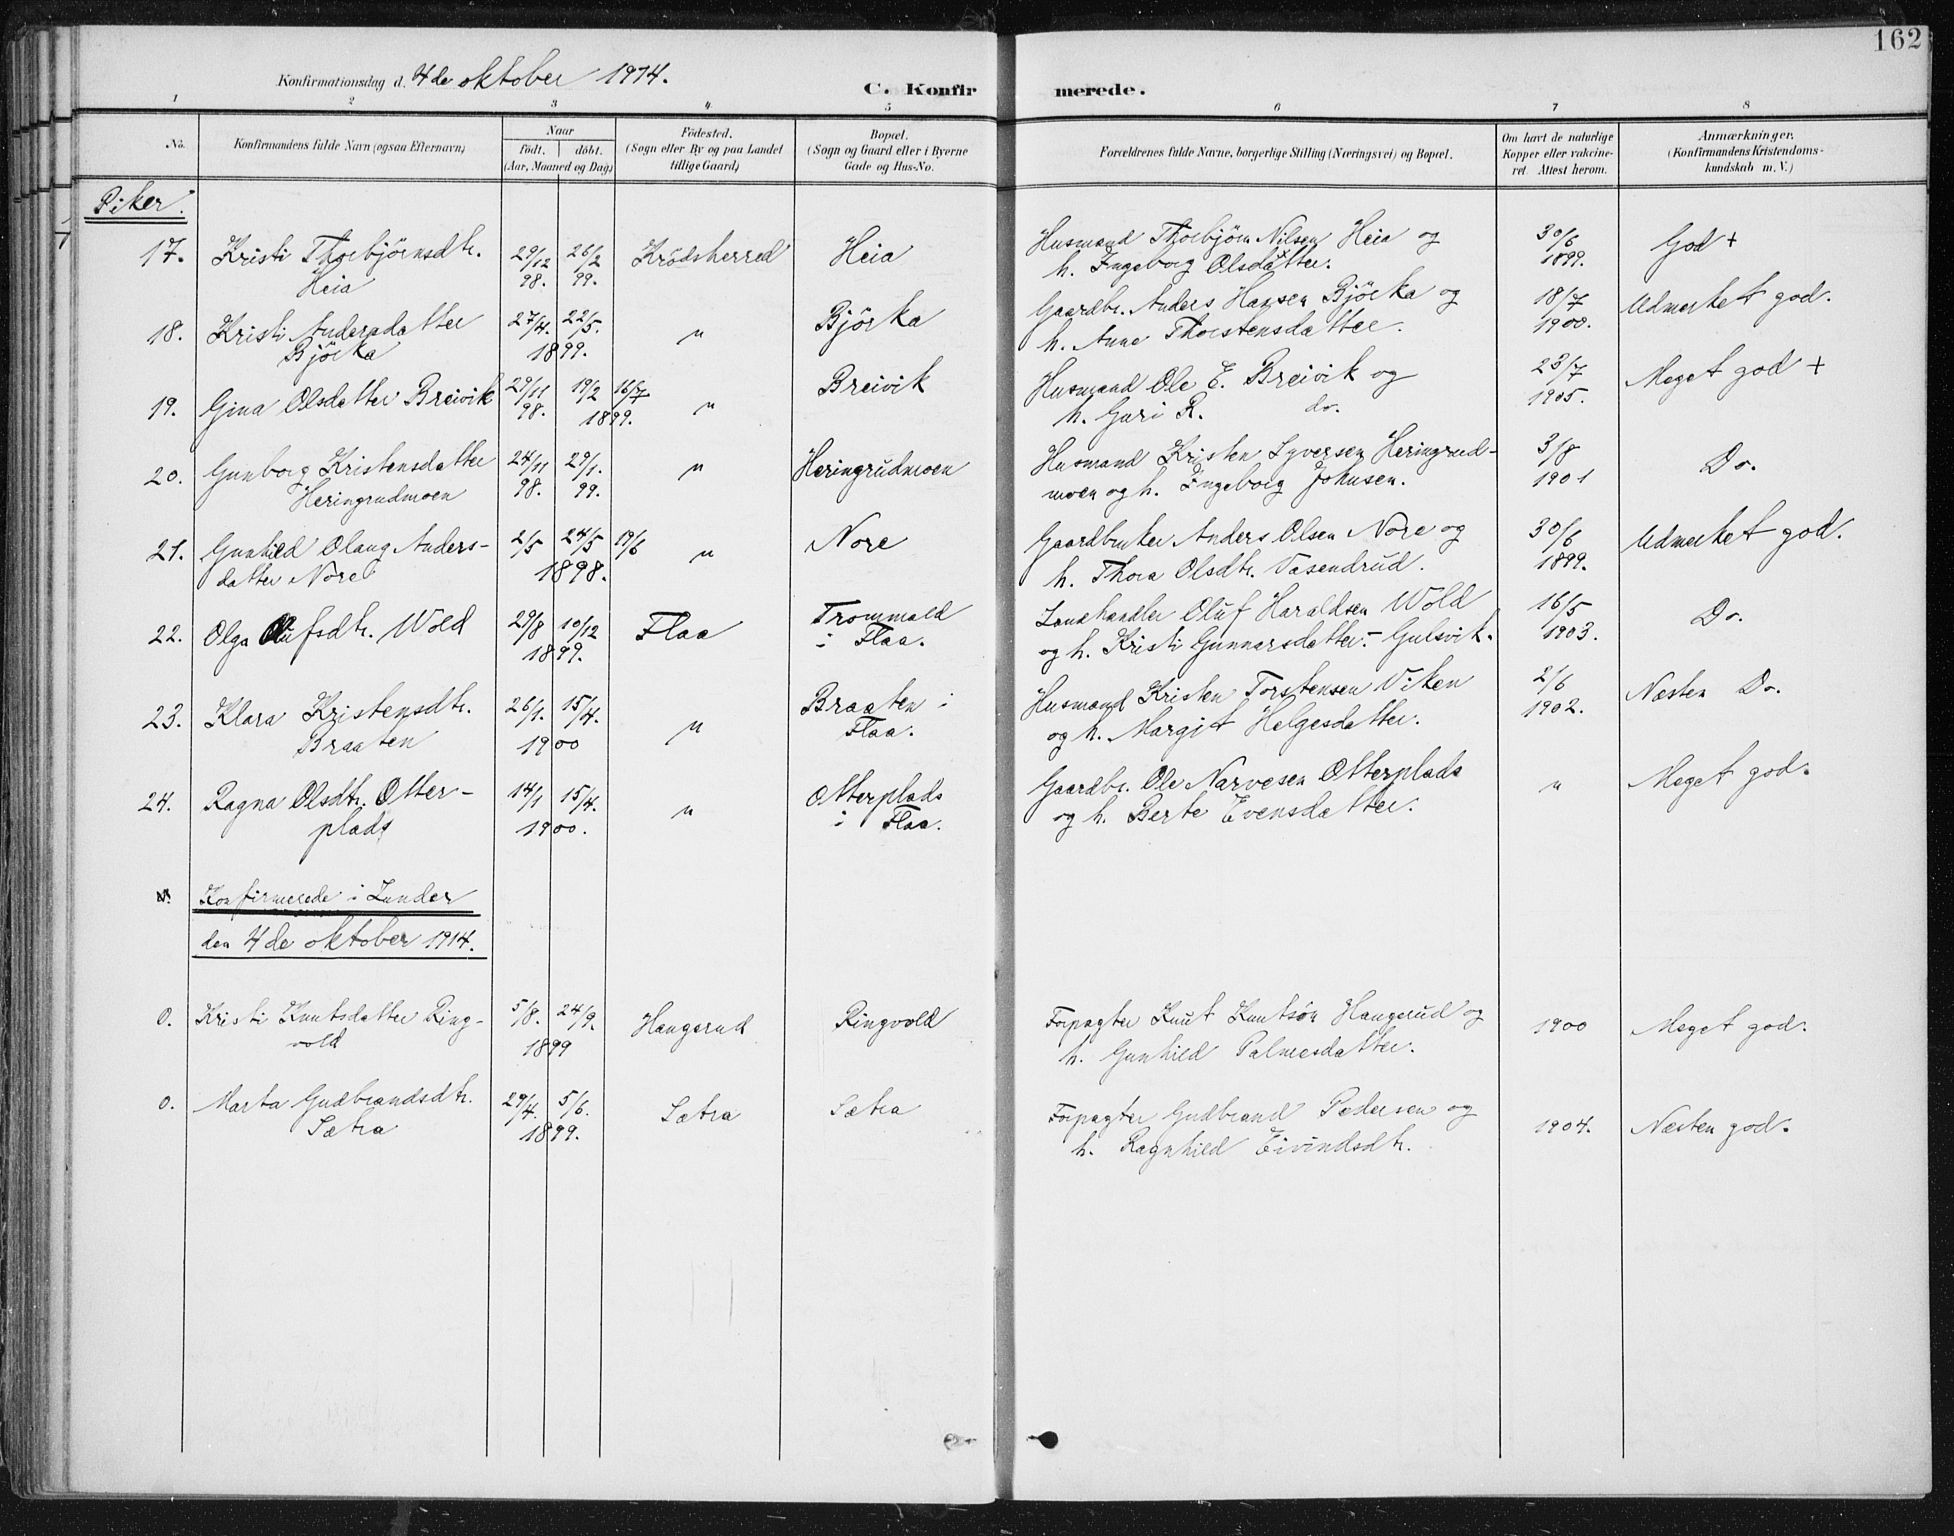 162
Konfirmationsdag d. 4de oktober 1914.
C. Konfirmerede.
1 2 3 4 5 6 7 8
No.
Konfirmandens fulde Navn (ogsaa Efternavn)
Naar
født. døbt.
(Aar, Maaned og Dag)
Födested.
(Sogn eller By og paa Landet
tillige Gaard)
Bopæl.
(Sogn og Gaard eller i Byerne
Gade og Hus-No.
Forældrenes fulde Navne, borgerlige Stilling (Næringsvei) og Bopæl.
Om havt de naturlige
Kopper eller vakcine-
ret. Attest herom.
Anmærkninger.
(Konfirmandens Kristendoms-
kundskab m. V.)
Piker.
17. Kristi Thorbjörnsdtr. 29/12 26/2 Krödsherred Heia Husmand Thorbjörn Nilsen Heia og 30/6 God +
Heia 98. 99. h. Ingeborg Olsdatter. 1899.
18. Kristi Andersdatter 27/4. 22/5. " Björka Gaardbr. Anders Hansen Björka og 18/7 Udmerket god.
Björka 1899. h. Anne Thorstensdatter. 1900.
19. Gina Olsdatter Breivik 29/11 19/2 16/7 " Breivik Husmand Ole E. Breivik og 23/7 Meget god +
98. 1899. h. Guri R. do. 1905.
20. Gunborg Kristensdatter 24/11 29/1. " Heringrudmoen Husmand Kristen Syversen Heringrud- 3/8 Do.
Heringrudmoen 98. 99. moen og h. Ingeborg Johnsen. 1901
21. Gunhild Olaug Anders- 2/5 24/5 19/6 " Nore Gaardbruker Anders Olsen Nore og 30/6 Udmerket god.
datter Nore 1898. h. Thora Olsdtr. Vasendrud. 1899.
22. Olga Olufsdtr. Wold 29/8 10/12 Flaa Trommald Landhandler Oluf Haraldsen Wold 16/5 Do.
1899. i Flaa. og h. Kristi Gunnarsdatter. - Gulsvik. 1903.
23. Klara Kristensdtr. 26/1. 15/4. " Braaten i Husmand Kristen Torstensen Viken 2/6 Næsten Do.
Braaten 1900 Flaa. og h. Margit Helgesdatter. 1902.
24. Ragna Olsdtr. Otter- 14/1 15/4. " Otterplads Gaardbr. Ole Narvesen Otterplads " Meget god.
plads 1900. i Flaa. og h. Berte Evensdatter.
Konfirmerede i Lunder
den 4de oktober 1914.
0. Kristi Knutsdatter Ring- 5/8. 24/9. Haugerud Ringvold Forpagter Knut Knutsön Haugerud og 1900 Meget god.
vold 1899 h. Gunhild Palmesdatter.
0. Marta Gudbrandsdtr. 29/4. 5/6. Sætra Sætra Forpagter Gudbrand Pedersen og 1904. Næsten god.
Sætra 1899. h. Ragnhild Eivindsdtr.